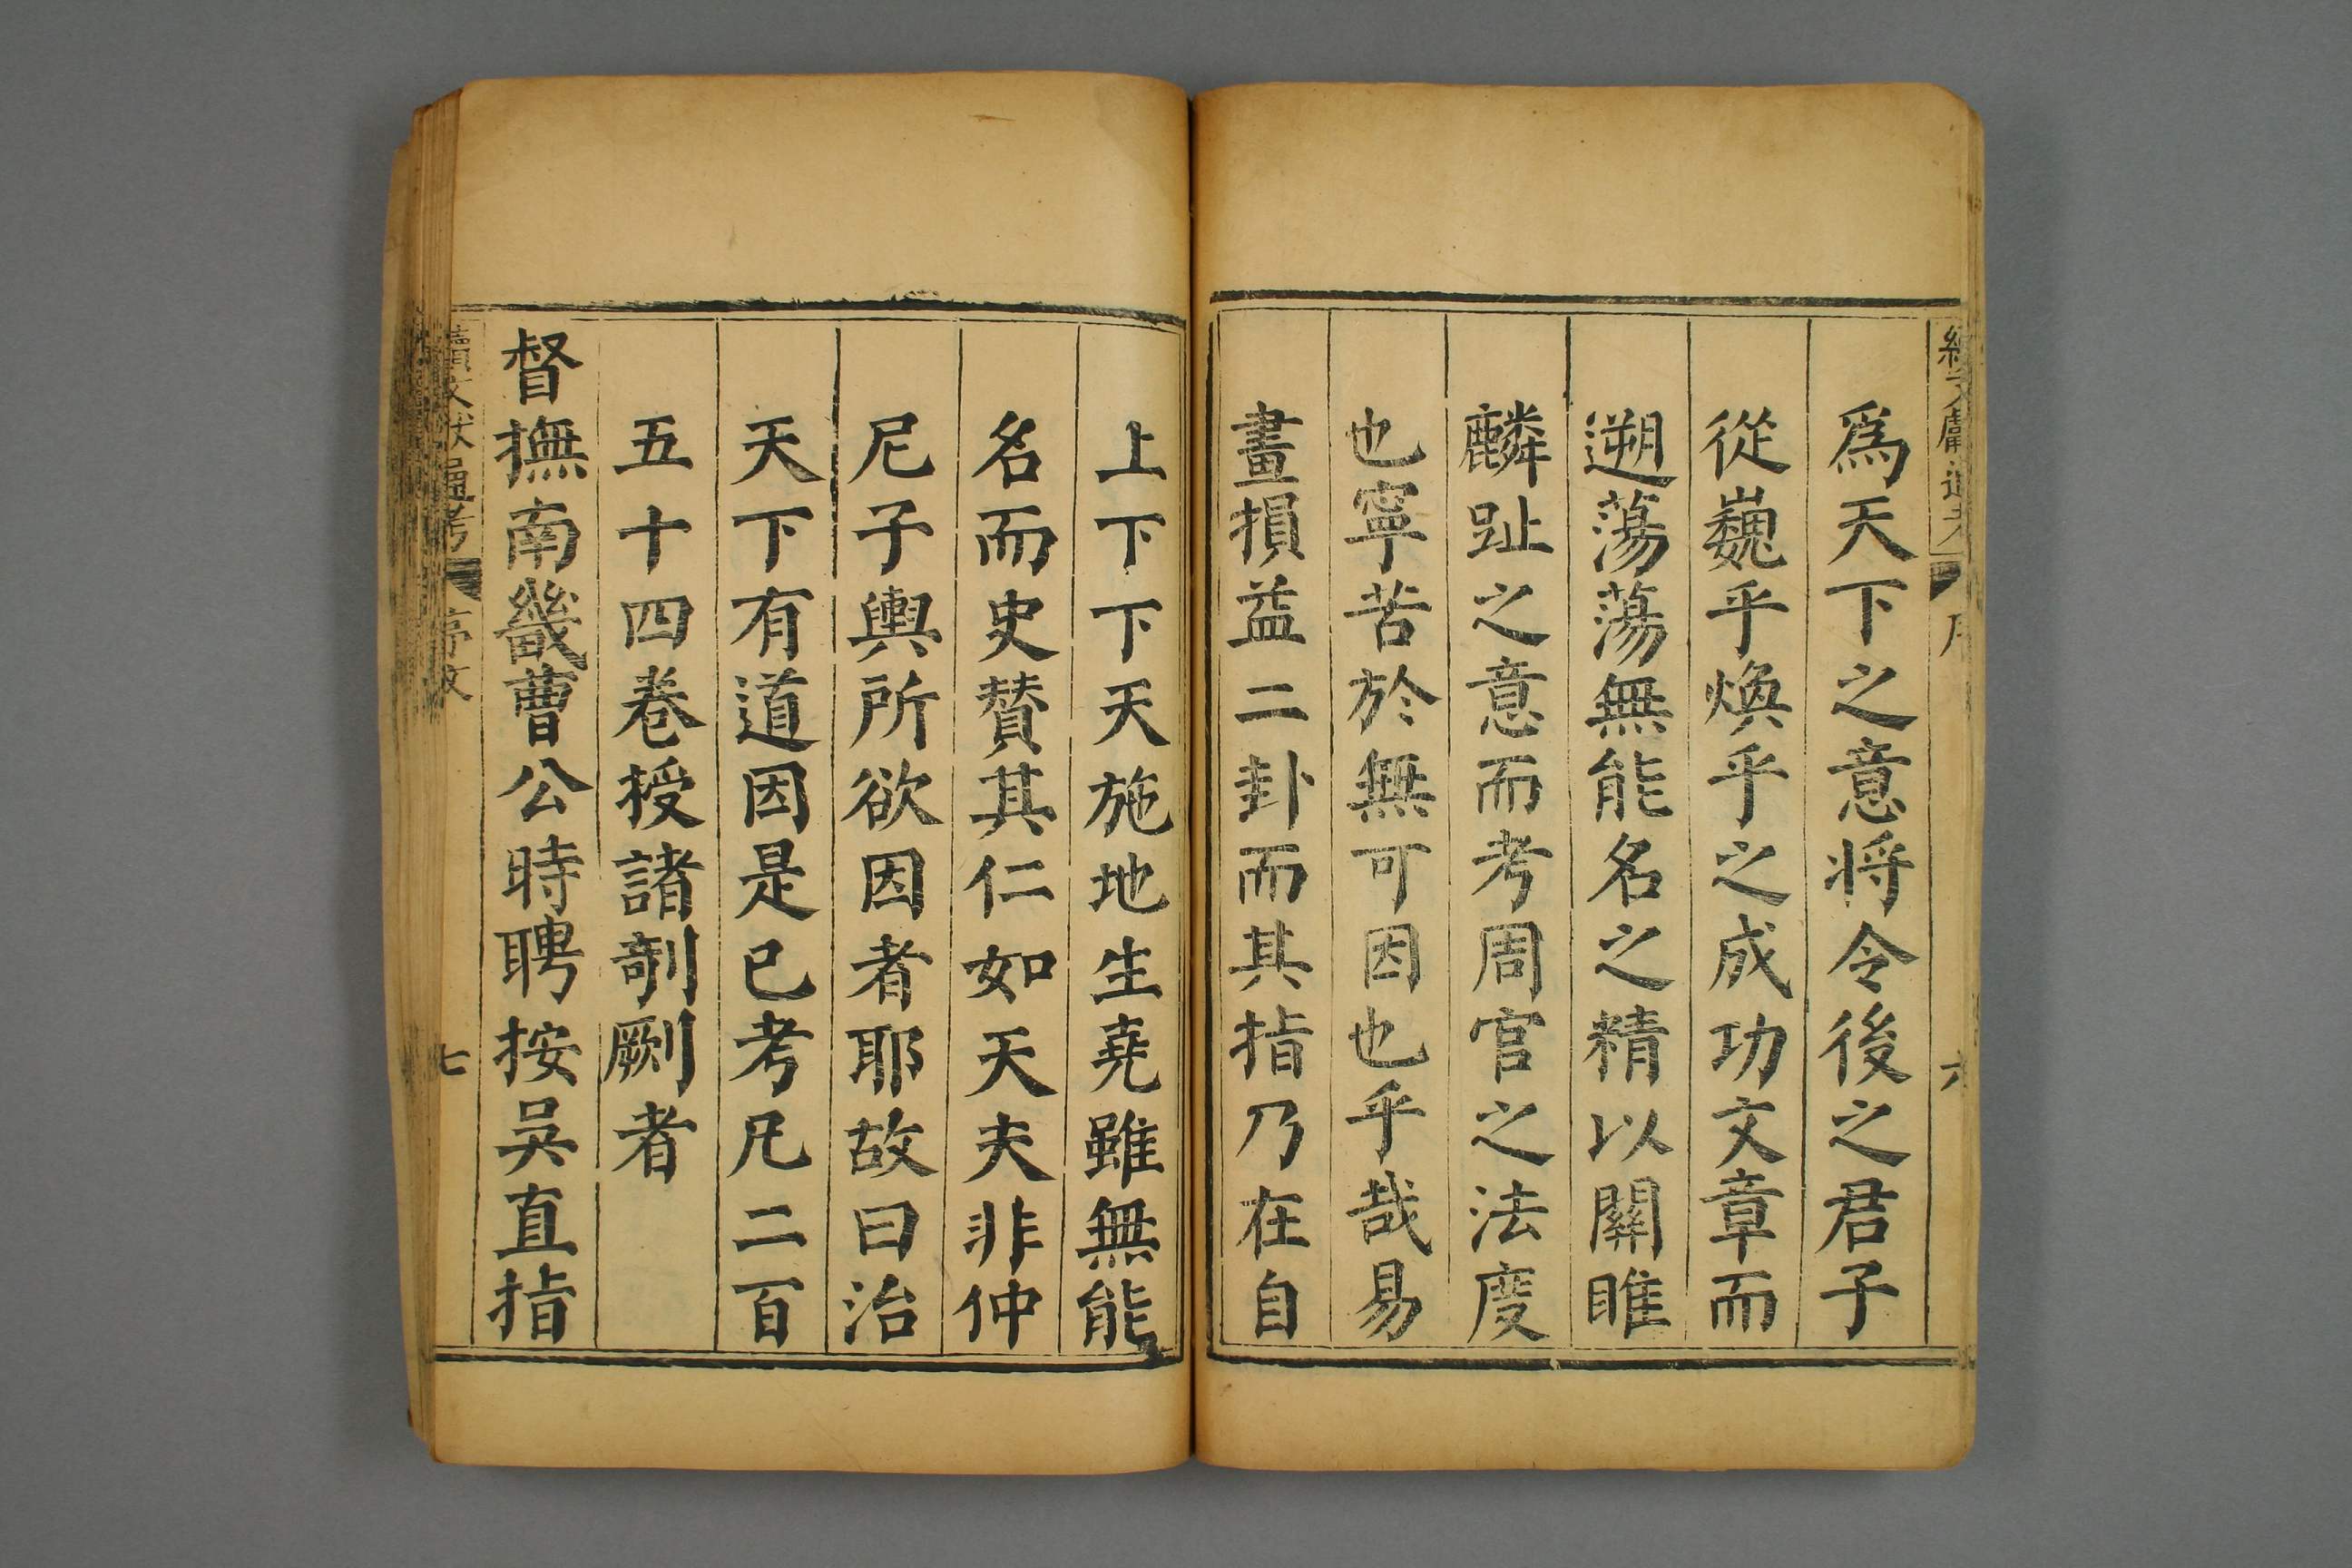 爲天下之意將令後之君子
從巍乎煥乎之成功文章而
遡蕩蕩無能名之精以關雎
麟趾之意而考周官之法度
也寧苦於無可因也乎哉易
畫損益二卦而其指乃在自
上下下天施地生堯雖無能
名而史贊其仁如天夫非仲
尼子輿所欲因者耶故曰治
天下有道因是已考凡二百
五十四卷授諸剞劂者
督撫南畿曹公時聘按吳直指
續文獻通考 序文 七